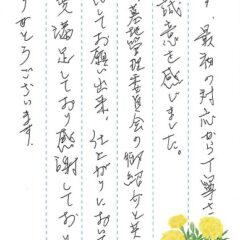 す。最初の対応から丁寧さ
誠意を感じました。
墓地管理委員会の御紹介と
してお願い出来、仕上がりにおいて
満足しており感謝してお
うございます。